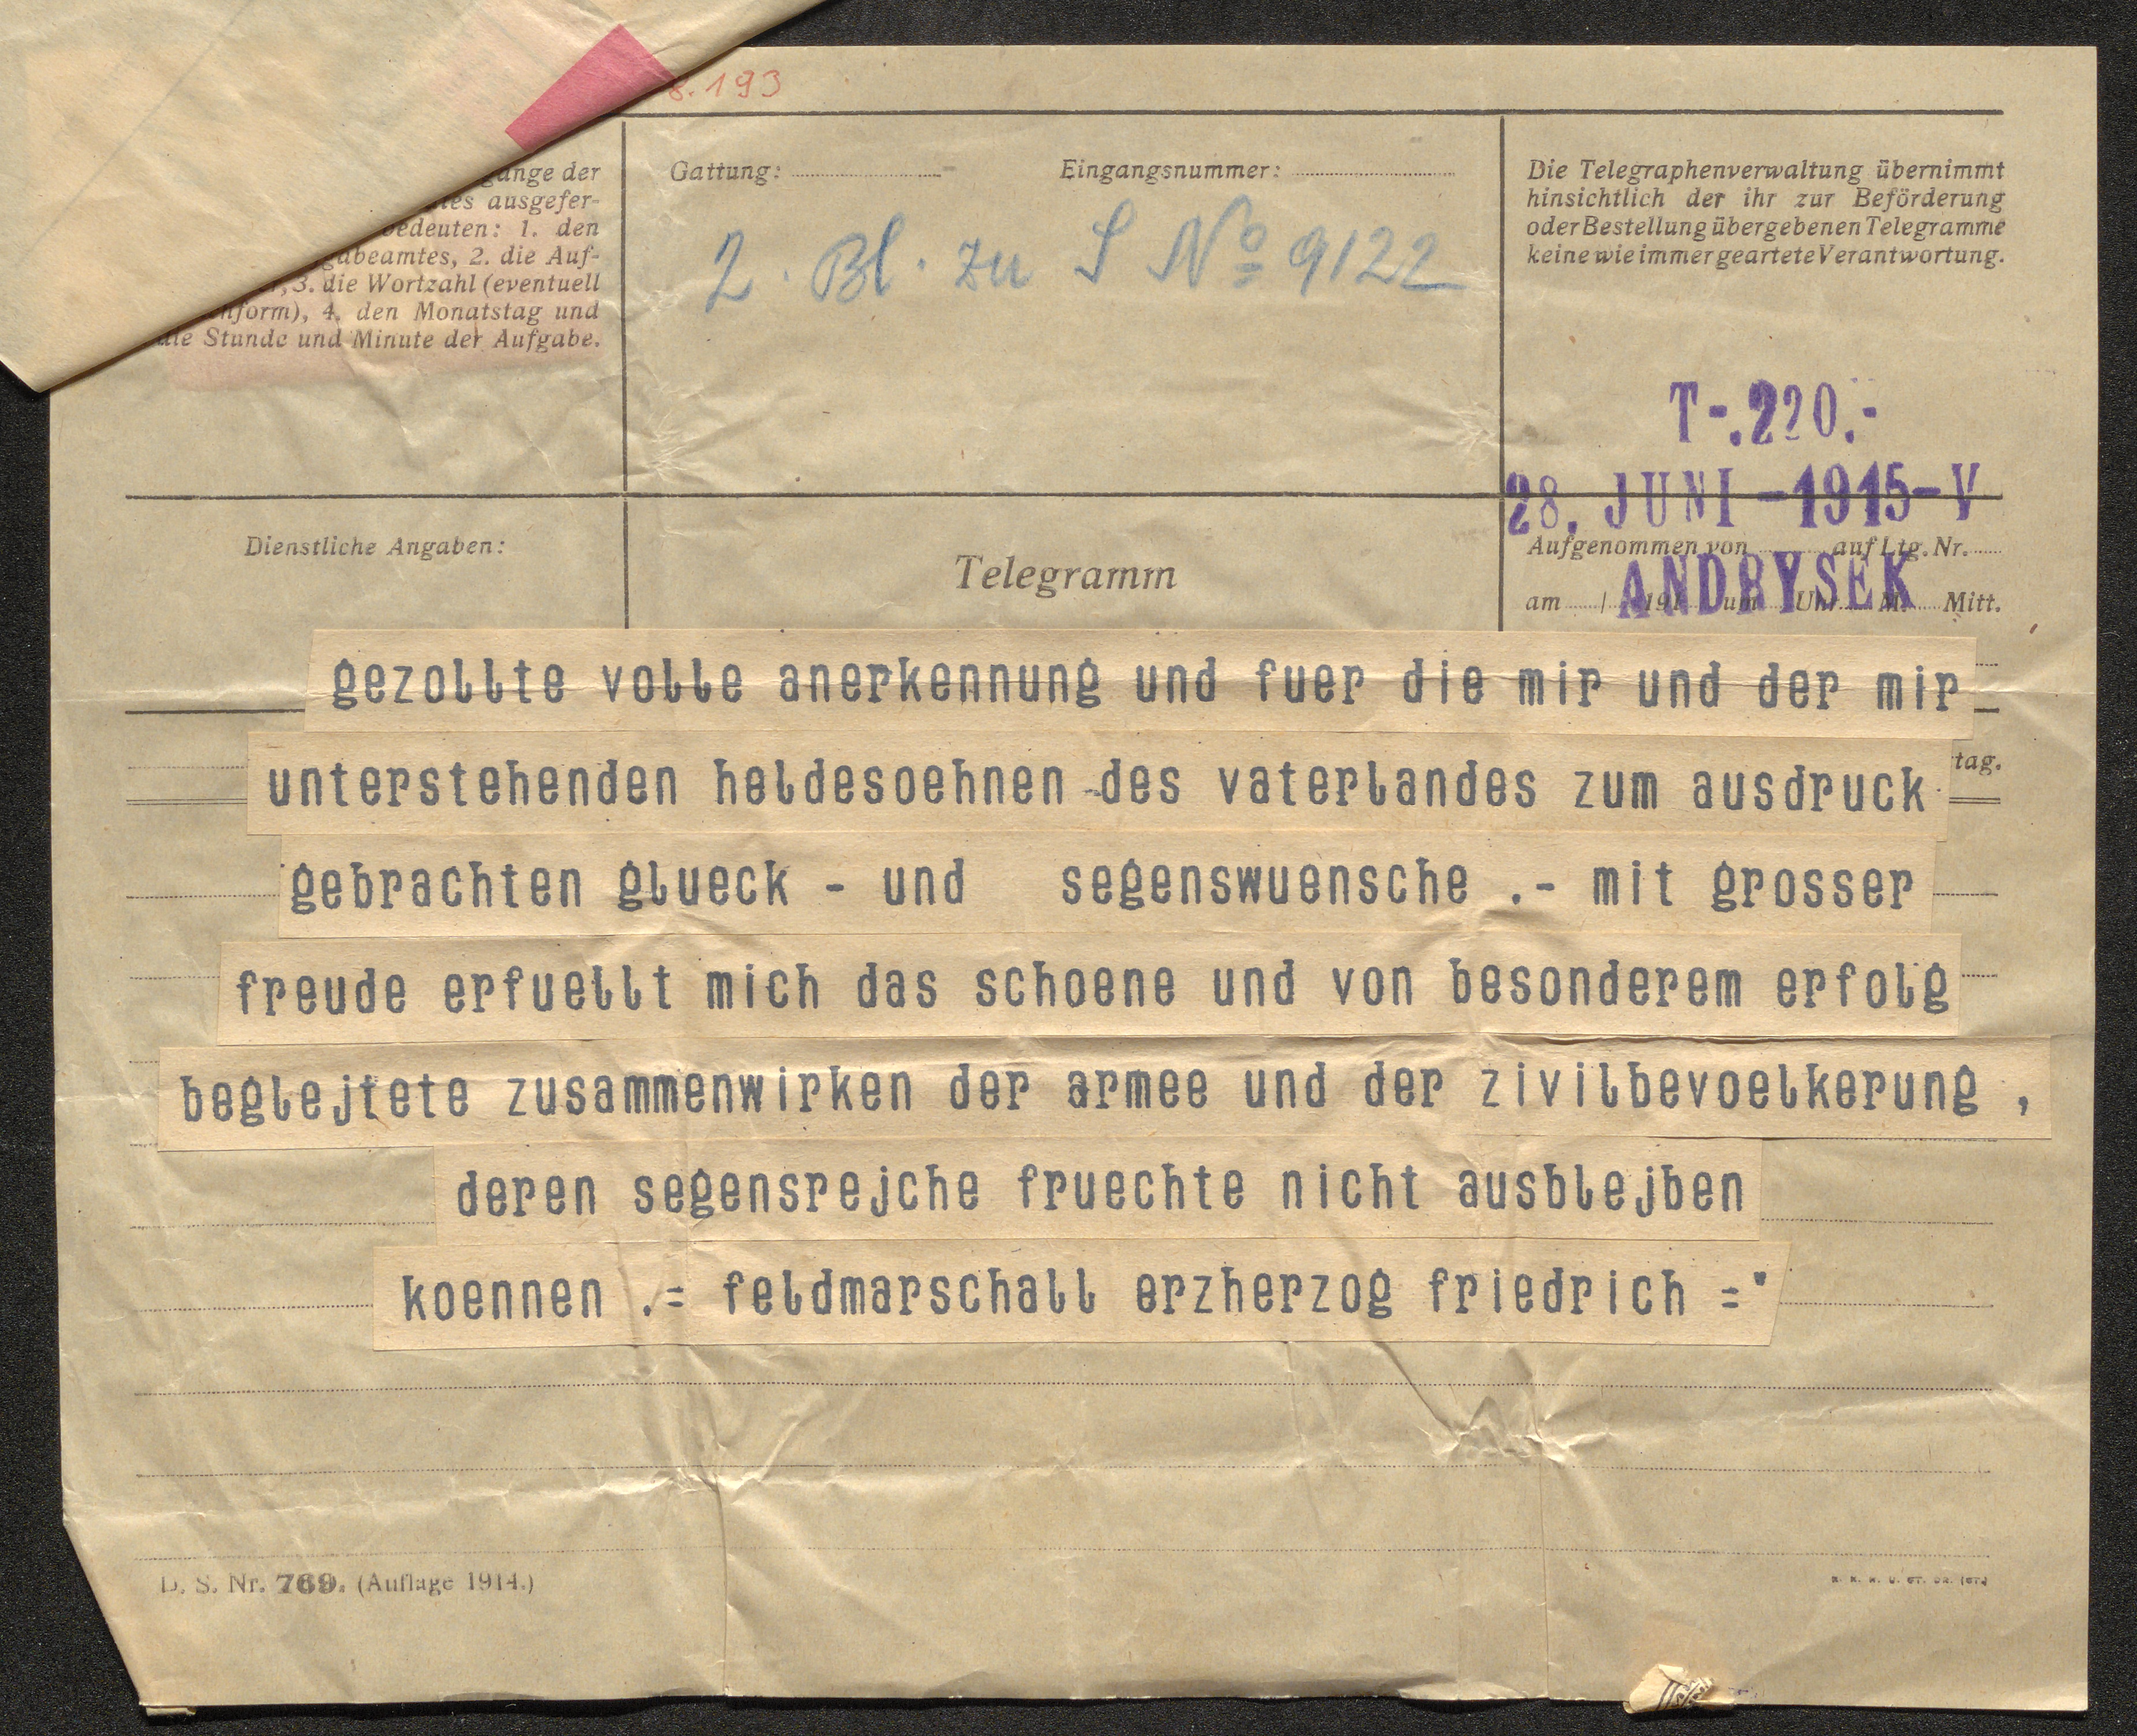 8.193
gänge der
ausgefer-
bedeuten: 1. den
2. die Auf-
3. die Wortzahl (eventuell
4. den Monatstag und
die Stunde und Minute der Aufgabe.
Gattung:
Eingangsnummer:
2. Bl. zu S No 9122
Die Telegraphenverwaltung übernimmt
hinsichtlich der ihr zur Beförderung
oder Bestellung übergebenen Telegramme
keine wie immer geartete Verantwortung.
T-.220.-
28. JUNI -1915-V
Dienstliche Angaben:
Telegramm
Aufgenommen von auf Ltg. Nr.
ANDRYSEK
am / 191 um Uhr M. Mitt.
gezollte volle anerkennung und fuer die mir und der mir
unterstehenden heldesoehnen -des vaterlandes zum ausdruck
tag.
gebrachten glueck - und segenswuensche .- mit grosser
freude erfuellt mich das schoene und von besonderem erfolg
beglejtete zusammenwirken der armee und der zivilbevoelkerung ,
deren segensrejche fruechte nicht ausblejben
koennen .= feldmarschall erzherzog friedrich ="
D. S. Nr. 769. (Auflage 1914.)